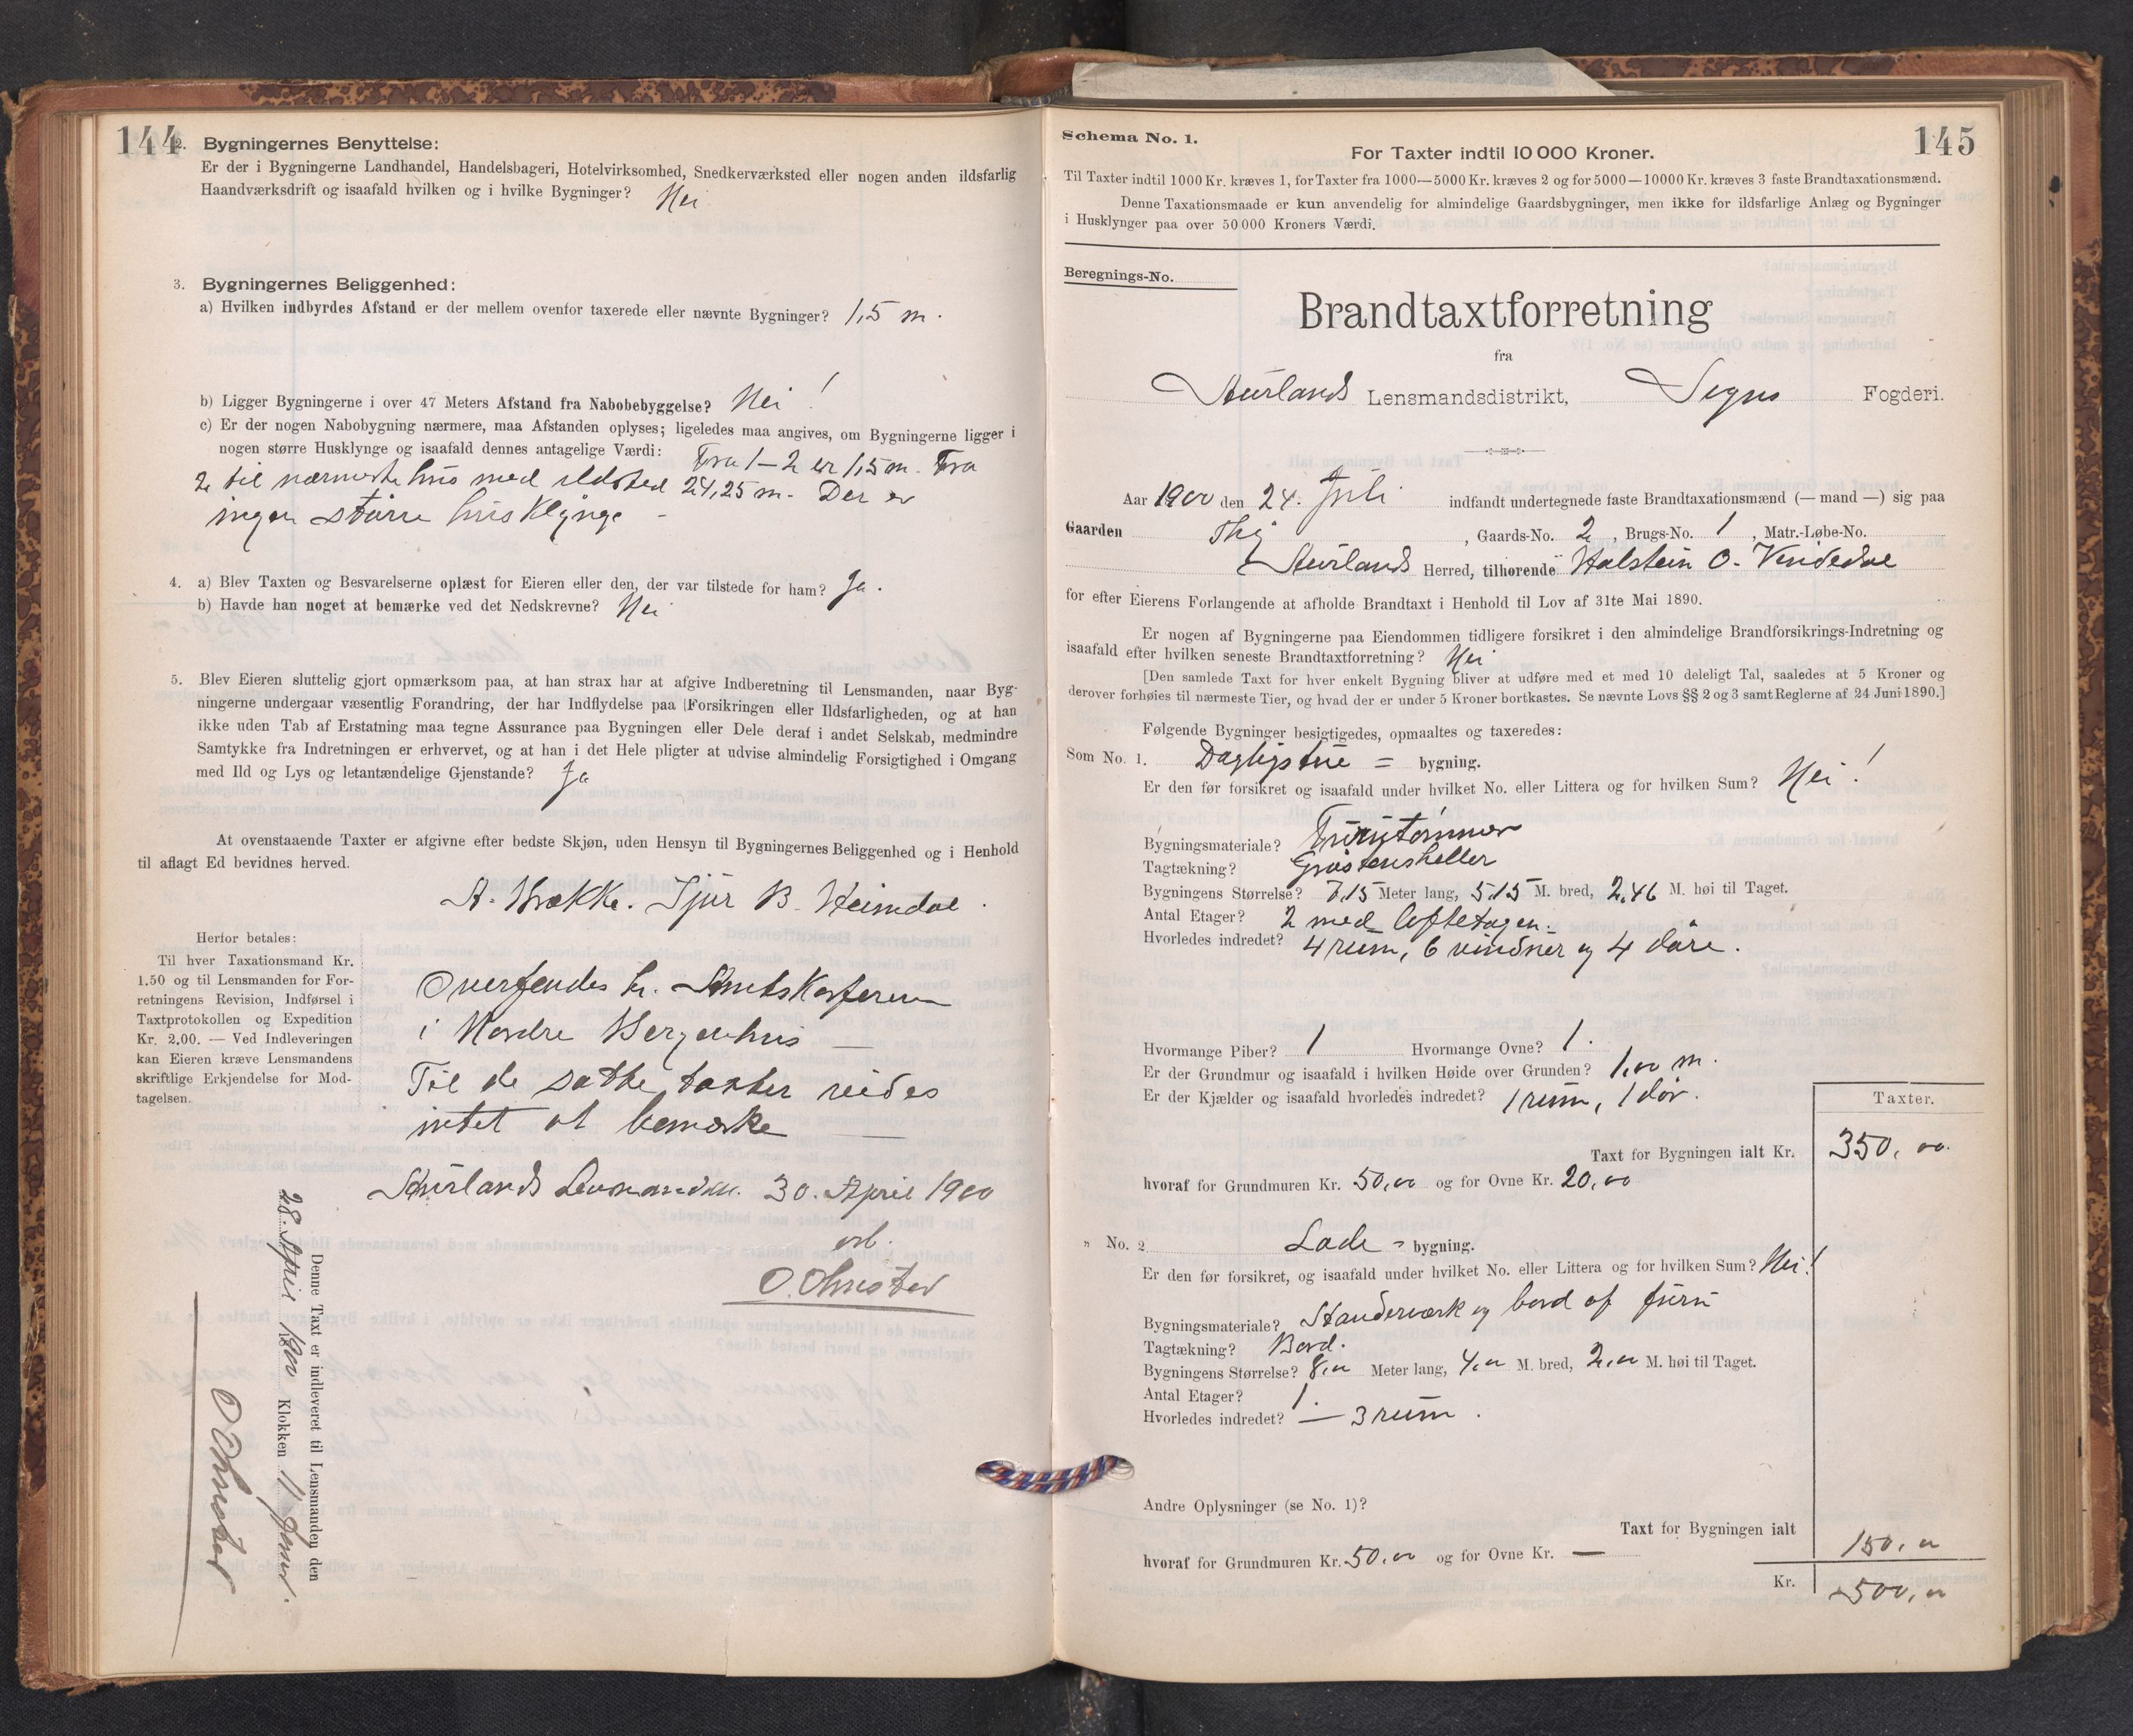 144
2. Bygningernes Benyttelse:
Er der i Bygningerne Landhandel, Handelsbageri, Hotelvirksomhed, Snedkerværksted eller nogen anden ildsfarlig
Haandværksdrift og isaafald hvilken og i hvilke Bygninger? Nei
3. Bygningernes Beliggenhed:
a) Hvilken indbyrdes Afstand er der mellem ovenfor taxerede eller nævnte Bygninger? 1,5 m.
b) Ligger Bygningerne i over 47 Meters Afstand fra Nabobebyggelse? Nei!
c) Er der nogen Nabobygning nærmere, maa Afstanden oplyses; ligeledes maa angives, om Bygningerne ligger i
nogen større Husklynge og isaafald dennes antagelige Værdi: Fra 1-2 er 1,5 m. Fra
2 til nærmeste hus med ildsted 24,25 m. Der er
ingen større hus klynge -
4. a) Blev Taxten og Besvarelserne oplæst for Eieren eller den, der var tilstede for ham? Ja.
b) Havde han noget at bemærke ved det Nedskrevne? Nei
5. Blev Eieren sluttelig gjort opmærksom paa, at han strax har at afgive Indberetning til Lensmanden, naar Byg-
ningerne undergaar væsentlig Forandring, der har Indflydelse paa Forsikringen eller Ildsfarligheden, og at han
ikke uden Tab af Erstatning maa tegne Assurance paa Bygningen eller Dele deraf i andet Selskab, medmindre
Samtykke fra Indretningen er erhvervet, og at han i det Hele pligter at udvise almindelig Forsigtighed i Omgang
med Ild og Lys og letantændelige Gjenstande? Ja
At ovenstaaende Taxter er afgivne efter bedste Skjøn, uden Hensyn til Bygningernes Beliggenhed og i Henhold
til aflagt Ed bevidnes herved.
A. Brække. Sjur B. Heimdal.
Herfor betales:
Til hver Taxationsmand Kr.
1.50 og til Lensmanden for For-
retningens Revision, Indførsel i
Taxtprotokollen og Expedition
Kr. 2,00. — Ved Indleveringen
kan Eieren kræve Lensmandens
skriftlige Erkjendelse for Mod-
tagelsen.
Oversendes hr. Amtskasserern
i Nordre Bergenhus —
Til de satte taxter vides
intet at bemærke —
Aurlands 30. April 1900
O. Ohnstad
Denne Taxt er indleveret til Lensmanden den
28. April 1900 Klokken 11 form.
O Ohnstad
145
Schema No. 1.
For Taxter indtil 10 000 Kroner.
Til Taxter indtil 1000 Kr. kræves 1, for Taxter fra 1000—5000 Kr. kræves 2 og for 5000—10000 Kr. kræves 3 faste Brandtaxationsmænd.
Denne Taxationsmaade er kun anvendelig for almindelige Gaardsbygninger, men ikke for ildsfarlige Anlæg og Bygninger
i Husklynger paa over 50 000 Kroners Værdi.
Beregnings-No.
Brandtaxtforretning
fra
Aurlands Lensmandsdistrikt, Sogns Fogderi.
Aar 1900 den 24. Juli indfandt undertegnede faste Brandtaxationsmænd (— mand —) sig paa
Gaarden , Gaards-No. 2, Brugs-No. 1, Matr.-Løbe-No.
Aurlands Herred, tilhørende Halstein O. Vindedal
for efter Eierens Forlangende at afholde Brandtaxt i Henhold til Lov af 31te Mai 1890.
Er nogen af Bygningerne paa Eiendommen tidligere forsikret i den almindelige Brandforsikrings-Indretning og
isaafald efter hvilken seneste Brandtaxtforretning? Nei
[Den samlede Taxt for hver enkelt Bygning bliver at udføre med et med 10 deleligt Tal, saaledes at 5 Kroner og
derover forhøies til nærmeste Tier, og hvad der er under 5 Kroner bortkastes. Se nævnte Lovs §§ 2 og 3 samt Reglerne af 24 Juni 1890.]
Følgende Bygninger besigtigedes, opmaaltes og taxeredes:
Som No. 1. Dagligstue = bygning.
Er den før forsikret og isaafald under hvilket No. eller Littera og for hvilken Sum? Nei!
Bygningsmateriale? Furutømmer
Tagtækning? Graastensheller
Bygningens Størrelse? 7,15 Meter lang, 5,15 M. bred, 2,46 M. høi til Taget.
Antal Etager? 2 med loftetagen.
Hvorledes indredet? 4 rum, 6 vinduer og 4 døre.
Hvormange Piber? 1 Hvormange Ovne? 1.
Er der Grundmur og isaafald i hvilken Høide over Grunden? 1,00 m.
Er der Kjælder og isaafald hvorledes indredet? 1 rum, 1 dør.
Taxter.
Taxt for Bygningen ialt Kr. 350,00.
hvoraf for Grundmuren Kr. 50,00 og for Ovne Kr. 20,00
„ No. 2 Lade = bygning.
Er den før forsikret, og isaafald under hvilket No. eller Littera og for hvilken Sum? Nei!
Bygningsmateriale? Standerværk og bord af furu
Tagtækning? Bord.
Bygningens Størrelse? 8,00 Meter lang, 4,00 M. bred, 2,00 M. høi til Taget.
Antal Etager? 1.
Hvorledes indredet? — 3 rum.
Andre Oplysninger (se No. 1)?
Taxt for Bygningen ialt 150,00
hvoraf for Grundmuren Kr. 50,00 og for Ovne Kr. —
Kr. 500,00